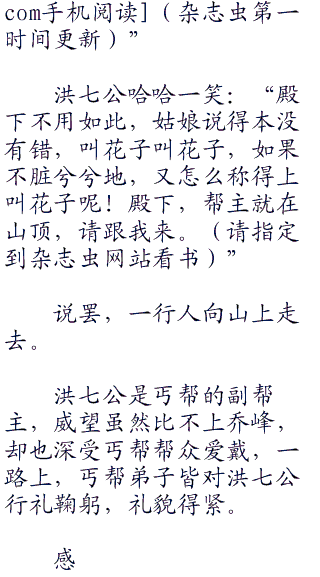 com手机阅读]（杂志虫第一
时间更新）”
洪七公哈哈一笑：“殿
下不用如此，姑娘说得本没
有错，叫花子叫花子，如果
不脏兮兮地，又怎么称得上
叫花子呢！殿下，帮主就在
山顶，请跟我来。（请指定
到杂志虫网站看书）”
说罢，一行人向山上走
去。
洪七公是丐帮的副帮
主，威望虽然比不上乔峰，
却也深受丐帮帮众爱戴，一
路上，丐帮弟子皆对洪七公
行礼鞠躬，礼貌得紧。
感